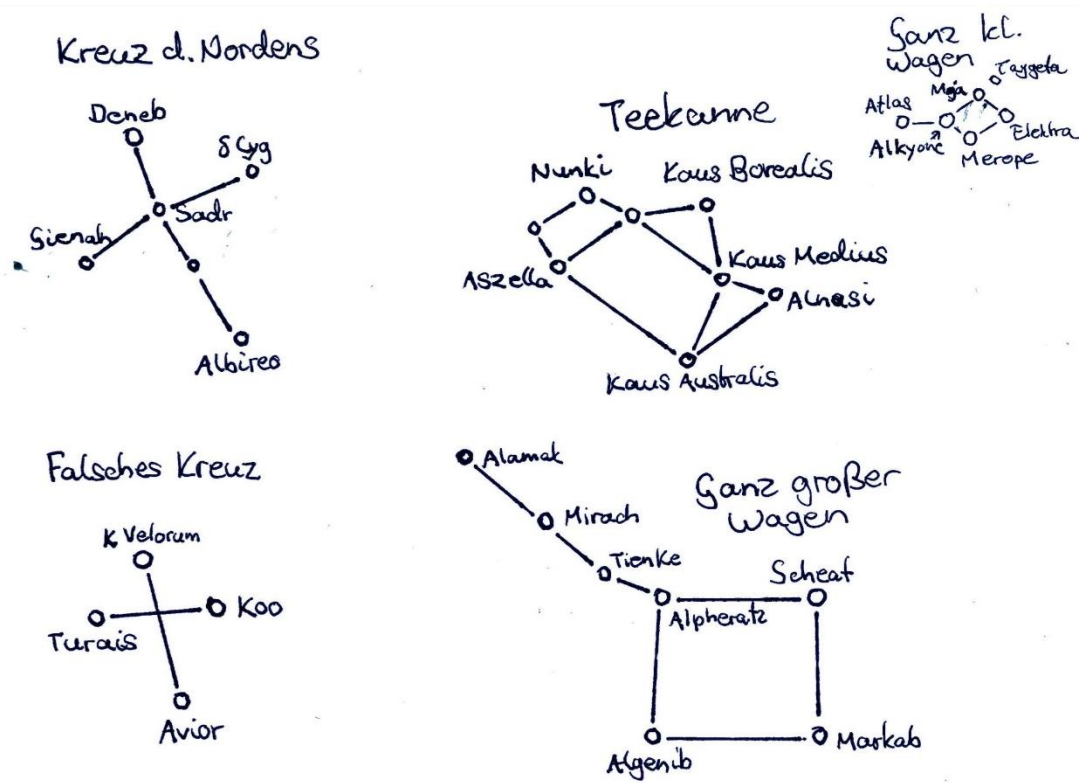 Kreuz d. Nordens
Deneb
δ Cyg
Sadr
Gienah
Albireo
Teekanne
Nunki
Kaus Borealis
Kaus Medius
Aszella
Alnasi
Kaus Australis
Ganz kl.
Wagen
Taygeta
Maja
Atlas
Elektra
Alkyone
Merope
Falsches Kreuz
κ Velorum
Koo
Turais
Avior
Ganz großer
Wagen
Alamak
Mirach
Tienke
Scheat
Alpheratz
Algenib
Markab